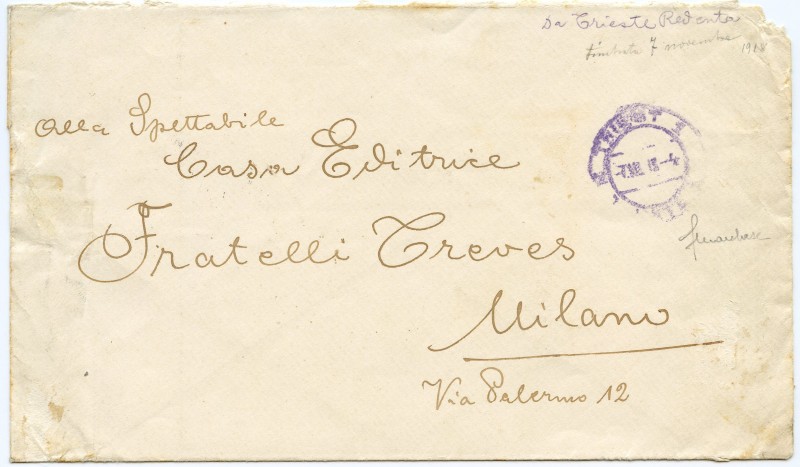 Da Trieste Redenta
timbrata 7 novembre 1918
Alla Spettabile
Casa Editrice
Fratelli Treves
Milano
Via Palermo 12
TRIEST 1